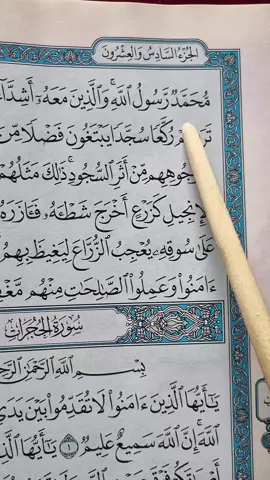 الجزء السادس والعشرون
مُّحَمَّدٌ رَّسُولُ ٱللَّهِ ۚ وَٱلَّذِينَ مَعَهُۥٓ أَشِدَّآءُ
رُكَّعًا سُجَّدًا يَبْتَغُونَ فَضْلًا مِّنَ
وُجُوهِهِم مِّنْ أَثَرِ ٱلسُّجُودِ ۚ ذَٰلِكَ مَثَلُهُمْ
ٱلْإِنجِيلِ كَزَرْعٍ أَخْرَجَ شَطْـَٔهُۥ فَـَٔازَرَهُۥ
عَلَىٰ سُوقِهِۦ يُعْجِبُ ٱلزُّرَّاعَ لِيَغِيظَ بِهِمُ
ءَامَنُوا۟ وَعَمِلُوا۟ ٱلصَّـٰلِحَـٰتِ مِنْهُم
سُورَةُ الحُجُرَاتِ
بِسْمِ ٱللَّهِ ٱلرَّحْمَـٰنِ
يَـٰٓأَيُّهَا ٱلَّذِينَ ءَامَنُوا۟ لَا تُقَدِّمُوا۟ بَيْنَ يَدَىِ
ٱللَّهَ ۚ إِنَّ ٱللَّهَ سَمِيعٌ عَلِيمٌ ١ يَـٰٓأَيُّهَا